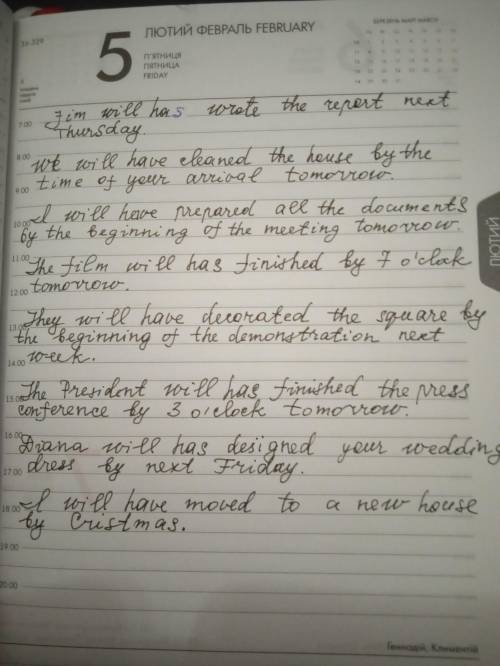 36-329
5
ЛЮТИЙ ФЕВРАЛЬ FEBRUARY
П'ЯТНИЦЯ
ПЯТНИЦА
FRIDAY
БЕРЕЗЕНЬ МАРТ MARCH
7.00
Jim will has wrote the report next
Thursday.
8.00
We will have cleaned the house by the
9.00
time of your arrival tomorrow.
10.00
I will have prepared all the documents
by the beginning of the meeting tomorrow.
11.00
The film will has finished by 7 o'clock
12.00
tomorrow.
13.00
They will have decorated the square by
the beginning of the demonstration next
14.00
week.
15.00
The President will has finished the press
conference by 3 o'clock tomorrow.
16.00
Diana will has designed your wedding
17.00
dress by next Friday.
18.00
I will have moved to a new house
by Cristmas.
19.00
20.00
ЛЮТИЙ
Геннадій, Климентій